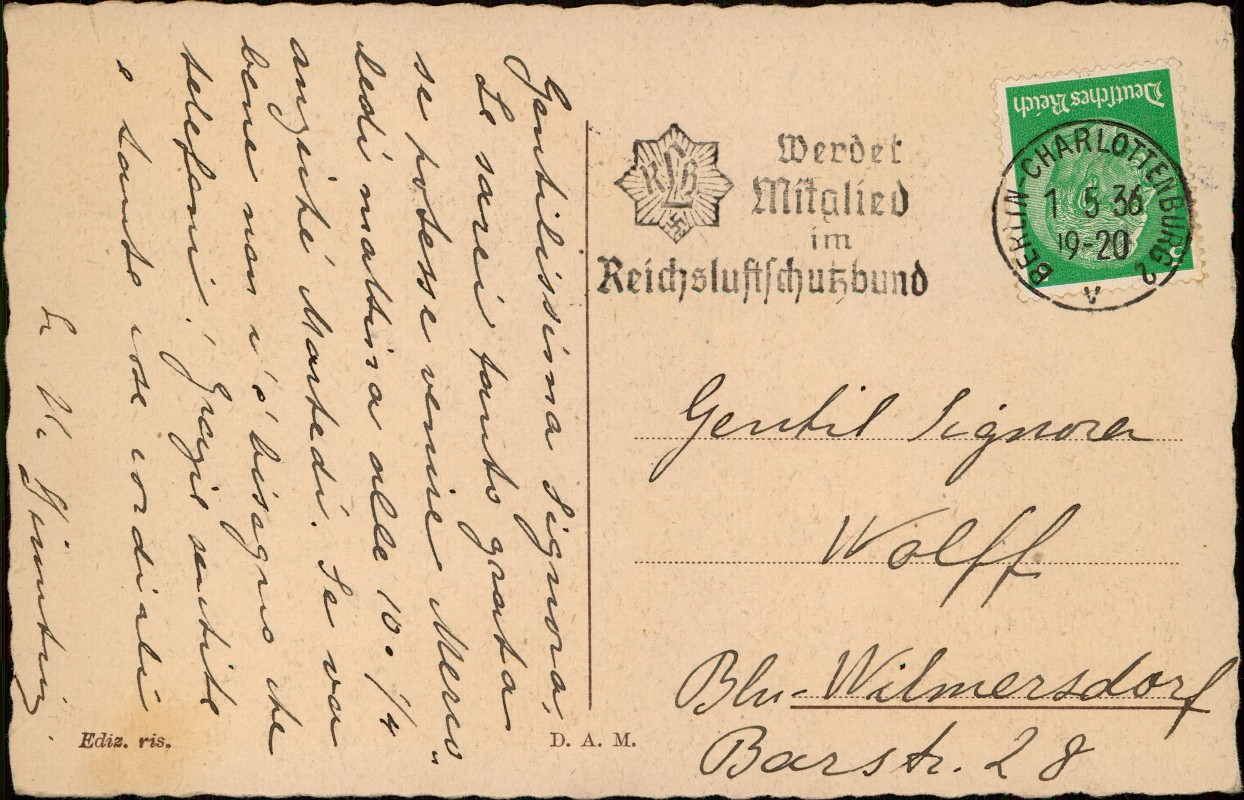 Gentilissima Signora,
Le sarei tanto grata
se potesse venire Merco„
ledì mattina alle 10.1/4
anziché Martedì. Se va
bene non c'è bisogno che
telefoni. Grazie sentite
e tante cose cordiali
Ediz. ris.
D. A. M.
RLB
Werdet
Mitglied
im
Reichsluftschutzbund
Deutsches Reich
BERLIN-CHARLOTTENBURG 2
1.5.36
19-20
v
Gentil Signora
Wolff
Bln-Wilmersdorf
Barstr. 28